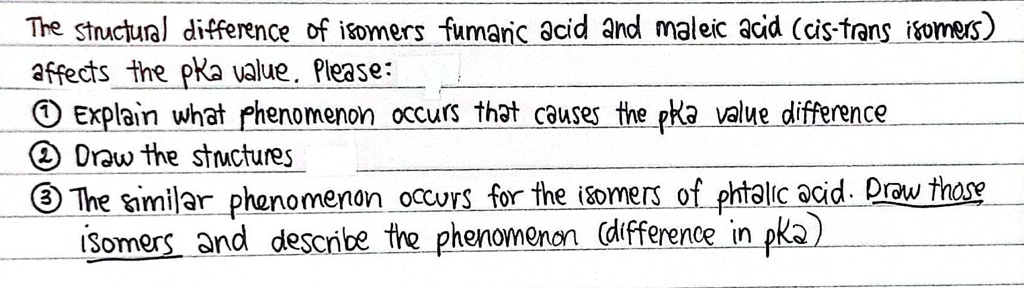 The structural difference of isomers fumaric acid and maleic acid (cis-trans isomers)
affects the pka value. Please:
① Explain what phenomenon occurs that causes the pka value difference
② Draw the structures
③ The similar phenomenon occurs for the isomers of phtalic acid. Draw those
isomers and describe the phenomenon (difference in pka)